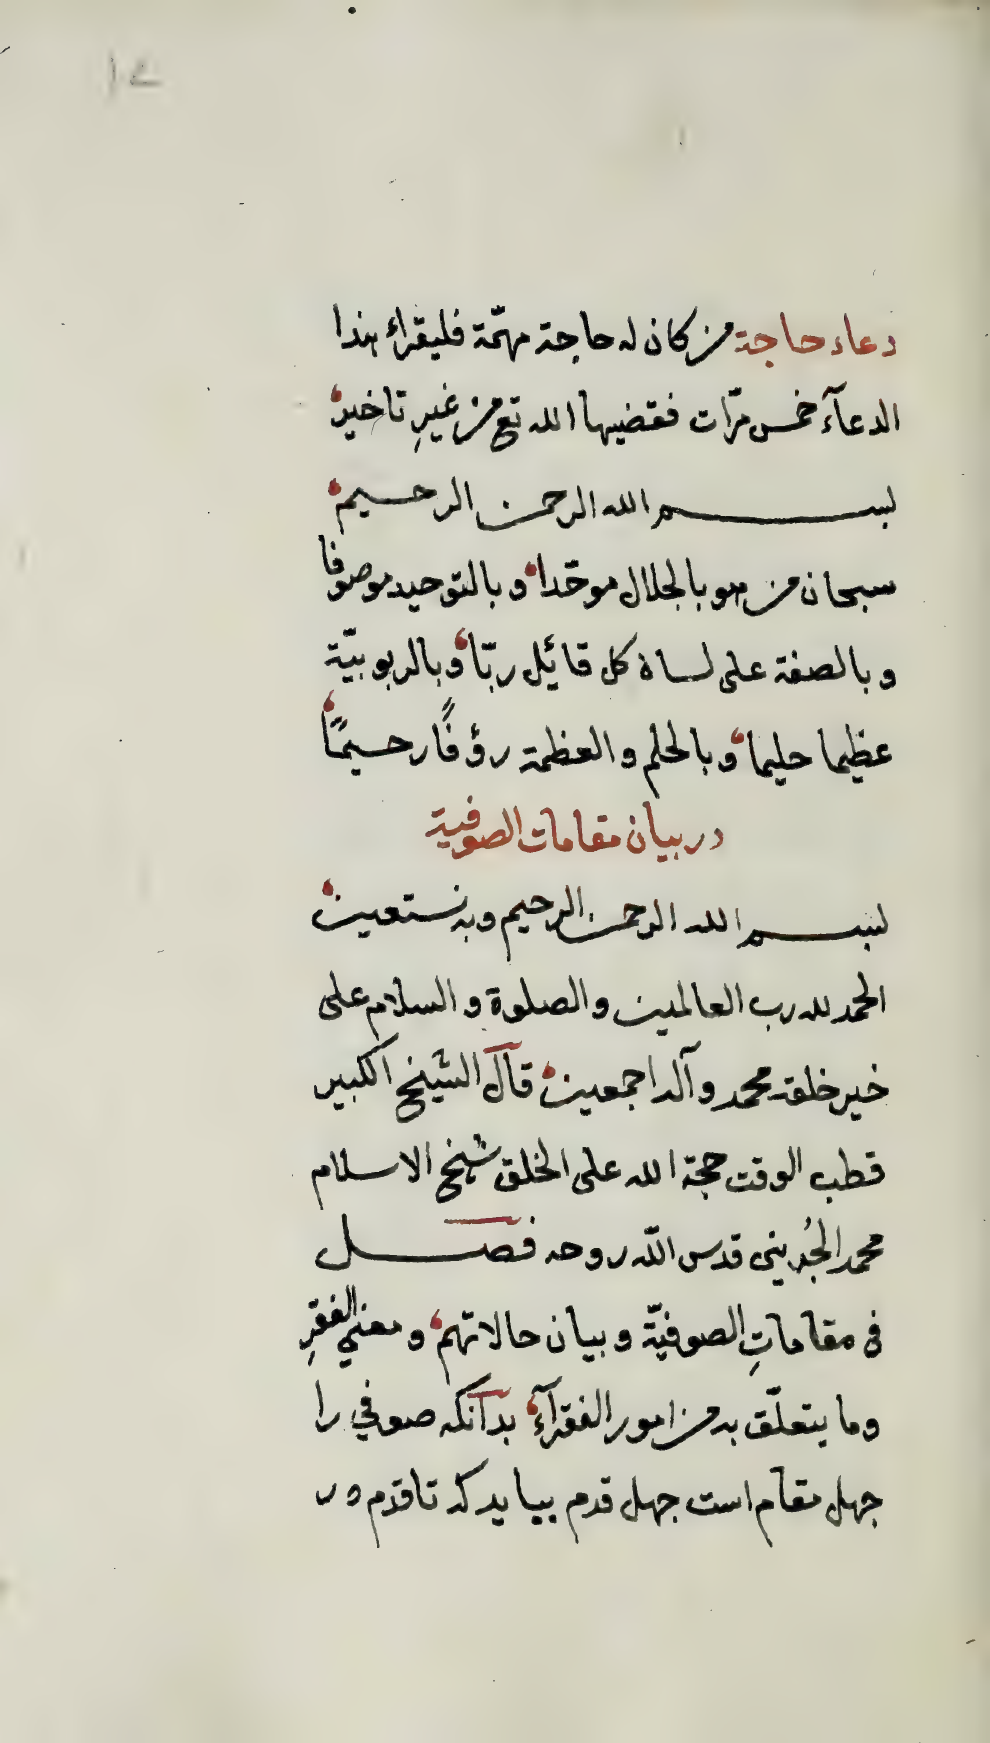 ١٤
دعاء حاجة من كان له حاجة مهمّة فليقراء هذا
الدعآء خمس مرّات فقضيها الله تع من غيرِ تاخير
بسم الله الرحمن الرحيم
سبحان من هو بالجلال موحّدا وبالتوحيد موصوفا
وبالصفة على لسان كل قائل ربّا وبالربوبيّة
عظيما حليما وبالحلم والعظمة رؤفًا رحيمًا
در بيان مقامات الصوفية
بسم الله الرحمن الرحيم وبه نستعين
الحمد لله رب العالمين والصلوة والسلام على
خير خلقه محمد وآله اجمعين قال الشيخ الكبير
قطب الوقت حجة الله على الخلق شيخ الاسلام
محمد الجُوينى قدس اللّه روحه فصل
فى مقاماتِ الصوفيّة وبيان حالاتهم ومعني الفقرِ
وما يتعلّق به من امور الفقرآء بدآنكه صوفي را
جهل مقام است جهل قدم بيايد كه تا قدم در